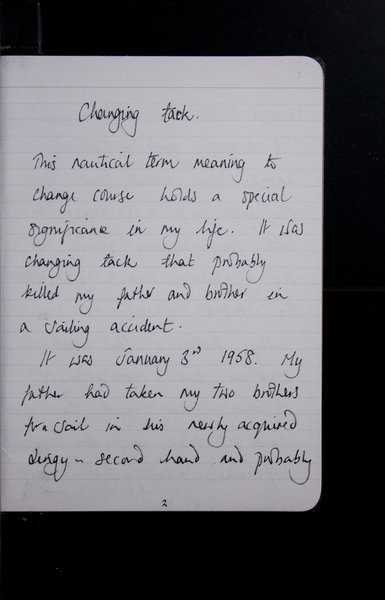 Changing tack.
This nautical term meaning to
change course holds a special
significance in my life. It was
changing tack that probably
killed my father and brother in
a sailing accident.
It was January 3rd 1958. My
father had taken my two brothers
for a sail in his newly acquired
dingy - second hand and probably
2